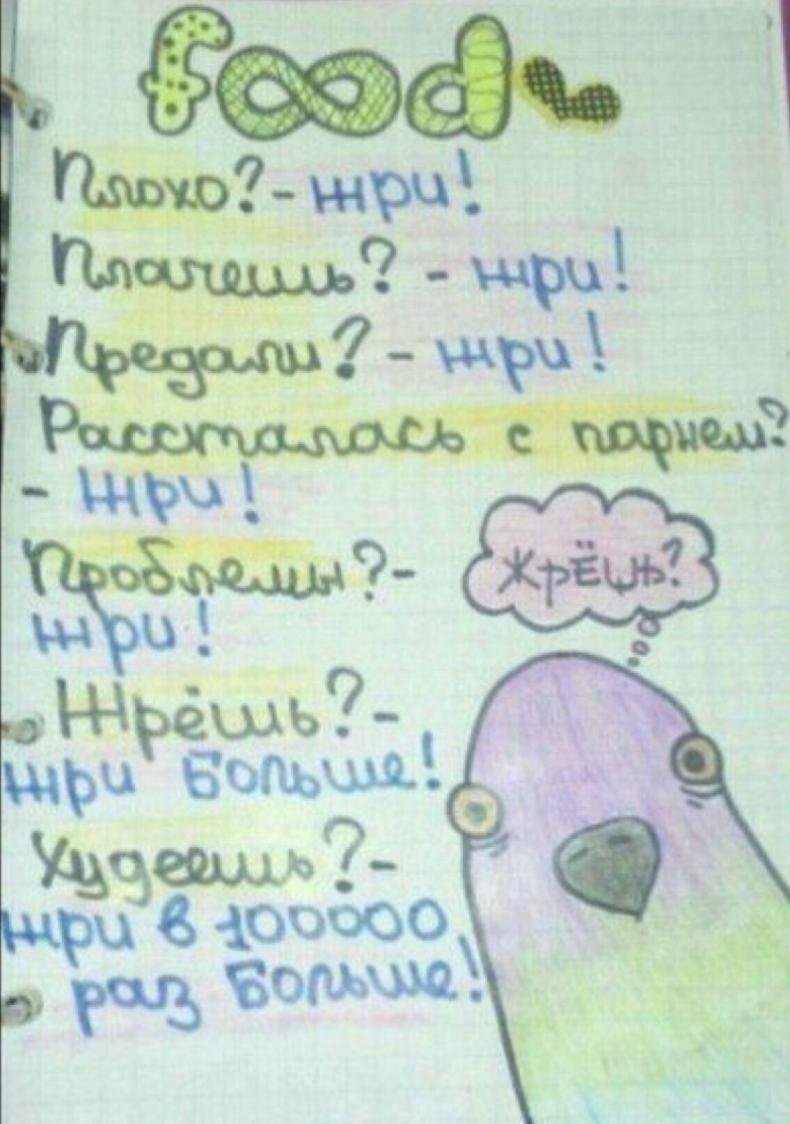 food
Плохо?-жри!
Плачешь? - жри!
Предали? - жри!
Рассталась с парнем?
- жри!
Проблемы?-
жри!
Жрёшь?
Жрёшь?-
жри больше!
Худеешь?-
жри в 100000
раз больше!